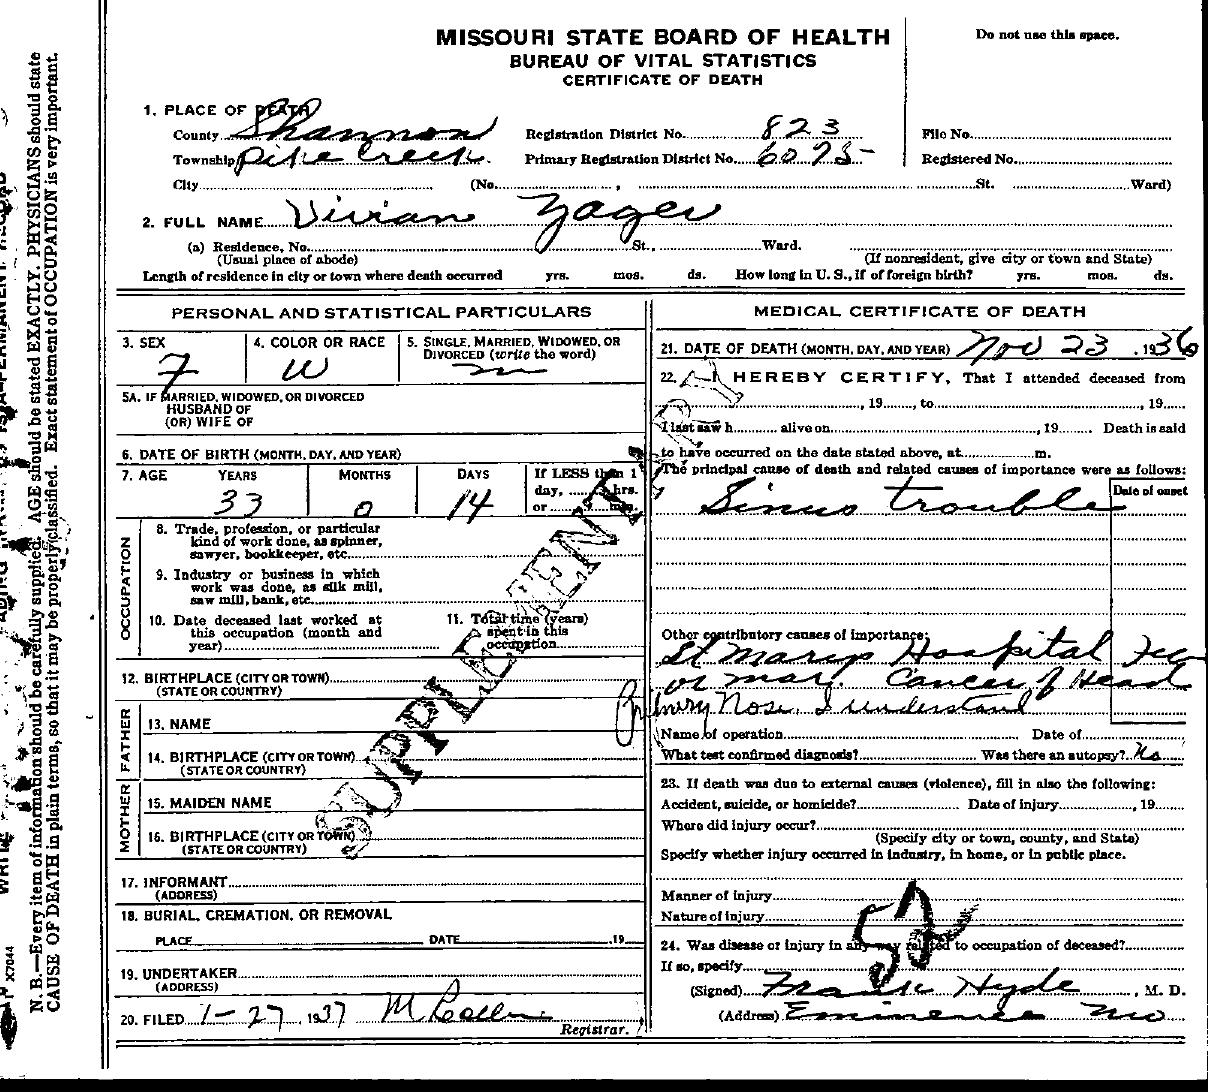 MISSOURI STATE BOARD OF HEALTH
BUREAU OF VITAL STATISTICS
CERTIFICATE OF DEATH
Do not use this space.
1. PLACE OF DEATH
County Shannon Registration District No. 823 File No.
Township Pike Creek Primary Registration District No. 6095 Registered No.
City (No. , St. Ward)
2. FULL NAME Vivian Yager
(a) Residence, No. St., Ward.
(Usual place of abode) (If nonresident, give city or town and State)
Length of residence in city or town where death occurred yrs. mos. ds. How long in U. S., if of foreign birth? yrs. mos. ds.
PERSONAL AND STATISTICAL PARTICULARS
3. SEX 4. COLOR OR RACE 5. SINGLE, MARRIED, WIDOWED, OR
DIVORCED (write the word)
F W m
5A. IF MARRIED, WIDOWED, OR DIVORCED
HUSBAND OF
(OR) WIFE OF
6. DATE OF BIRTH (MONTH, DAY, AND YEAR)
7. AGE YEARS MONTHS DAYS If LESS than 1
day, hrs.
or min.
33 0 14
OCCUPATION
8. Trade, profession, or particular
kind of work done, as spinner,
sawyer, bookkeeper, etc.
9. Industry or business in which
work was done, as silk mill,
saw mill, bank, etc.
10. Date deceased last worked at
this occupation (month and
year)
11. Total time (years)
spent in this
occupation
12. BIRTHPLACE (CITY OR TOWN)
(STATE OR COUNTRY)
FATHER
13. NAME
14. BIRTHPLACE (CITY OR TOWN)
(STATE OR COUNTRY)
MOTHER
15. MAIDEN NAME
16. BIRTHPLACE (CITY OR TOWN)
(STATE OR COUNTRY)
17. INFORMANT
(ADDRESS)
18. BURIAL, CREMATION, OR REMOVAL
PLACE DATE 19
19. UNDERTAKER
(ADDRESS)
20. FILED 1-27, 1937 M
Registrar.
SUPPLEMENTARY
MEDICAL CERTIFICATE OF DEATH
21. DATE OF DEATH (MONTH, DAY, AND YEAR) Nov 23, 1936
22. I HEREBY CERTIFY, That I attended deceased from
, 19 , to , 19
I last saw h alive on , 19 Death is said
to have occurred on the date stated above, at m.
The principal cause of death and related causes of importance were as follows:
Date of onset
Sinus trouble
Other contributory causes of importance:
St Marys Hospital
or mar. Cancer of Head
Nose, I understand
Name of operation Date of
What test confirmed diagnosis? Was there an autopsy? No
23. If death was due to external causes (violence), fill in also the following:
Accident, suicide, or homicide? Date of injury , 19
Where did injury occur?
(Specify city or town, county, and State)
Specify whether injury occurred in industry, in home, or in public place.
Manner of injury
Nature of injury
52
24. Was disease or injury in any way related to occupation of deceased?
If so, specify
(Signed) Frank Hyde, M. D.
(Address) Eminence Mo
N. B.—Every item of information should be carefully supplied. AGE should be stated EXACTLY. PHYSICIANS should state
CAUSE OF DEATH in plain terms, so that it may be properly classified. Exact statement of OCCUPATION is very important.
X7044